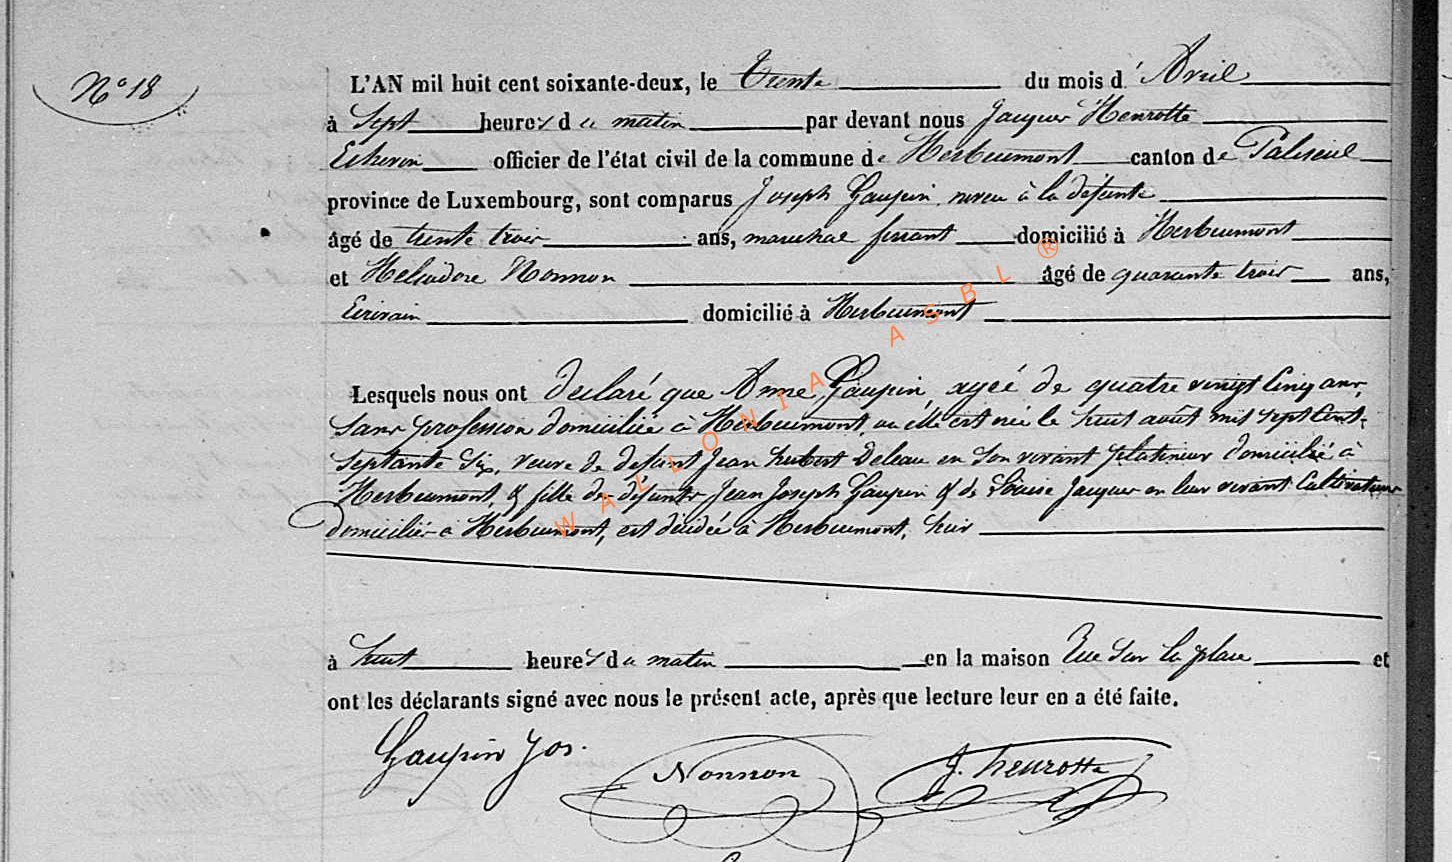 N° 18
L'AN mil huit cent soixante-deux, le trente du mois d' Avril
à Sept heures du matin par devant nous Jacques Henrotte
Echevin officier de l'état civil de la commune de Herbeumont canton de Paliseul
province de Luxembourg, sont comparus Joseph Gaupin, neveu à la défunte
âgé de trente trois ans, marechal ferrant domicilié à Herbeumont
et Heliodore Nonnon âgé de quarante trois ans,
Ecrivain domicilié à Herbeumont
Lesquels nous ont declaré que Anne Gaupin, agée de quatre vingt Cinq ans,
Sans profession domiciliée à Herbeumont, ou elle est née le huit août mil sept Cent
Septante Six, veuve de defunt Jean hubert Deleau en son vivant platineur domicilié à
Herbeumont, & fille des défunts Jean Joseph Gaupin & de Louise Jacques en leur vivant Cultivateurs
domiciliés à Herbeumont, est décédée à Herbeumont, hier
à huit heures du matin en la maison Rue Sur la place et
ont les déclarants signé avec nous le présent acte, après que lecture leur en a été faite.
Gaupin Jos.
Nonnon
J. henrotte
WALLONIA ASBL ®